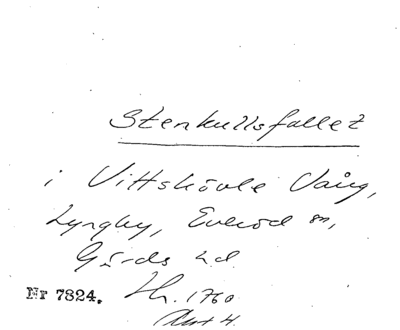 Stenkullsfallet
i Vittskövle Vång,
Lyngby, Everöd m,
Gärds hd
Nr 7824. Th. 1760